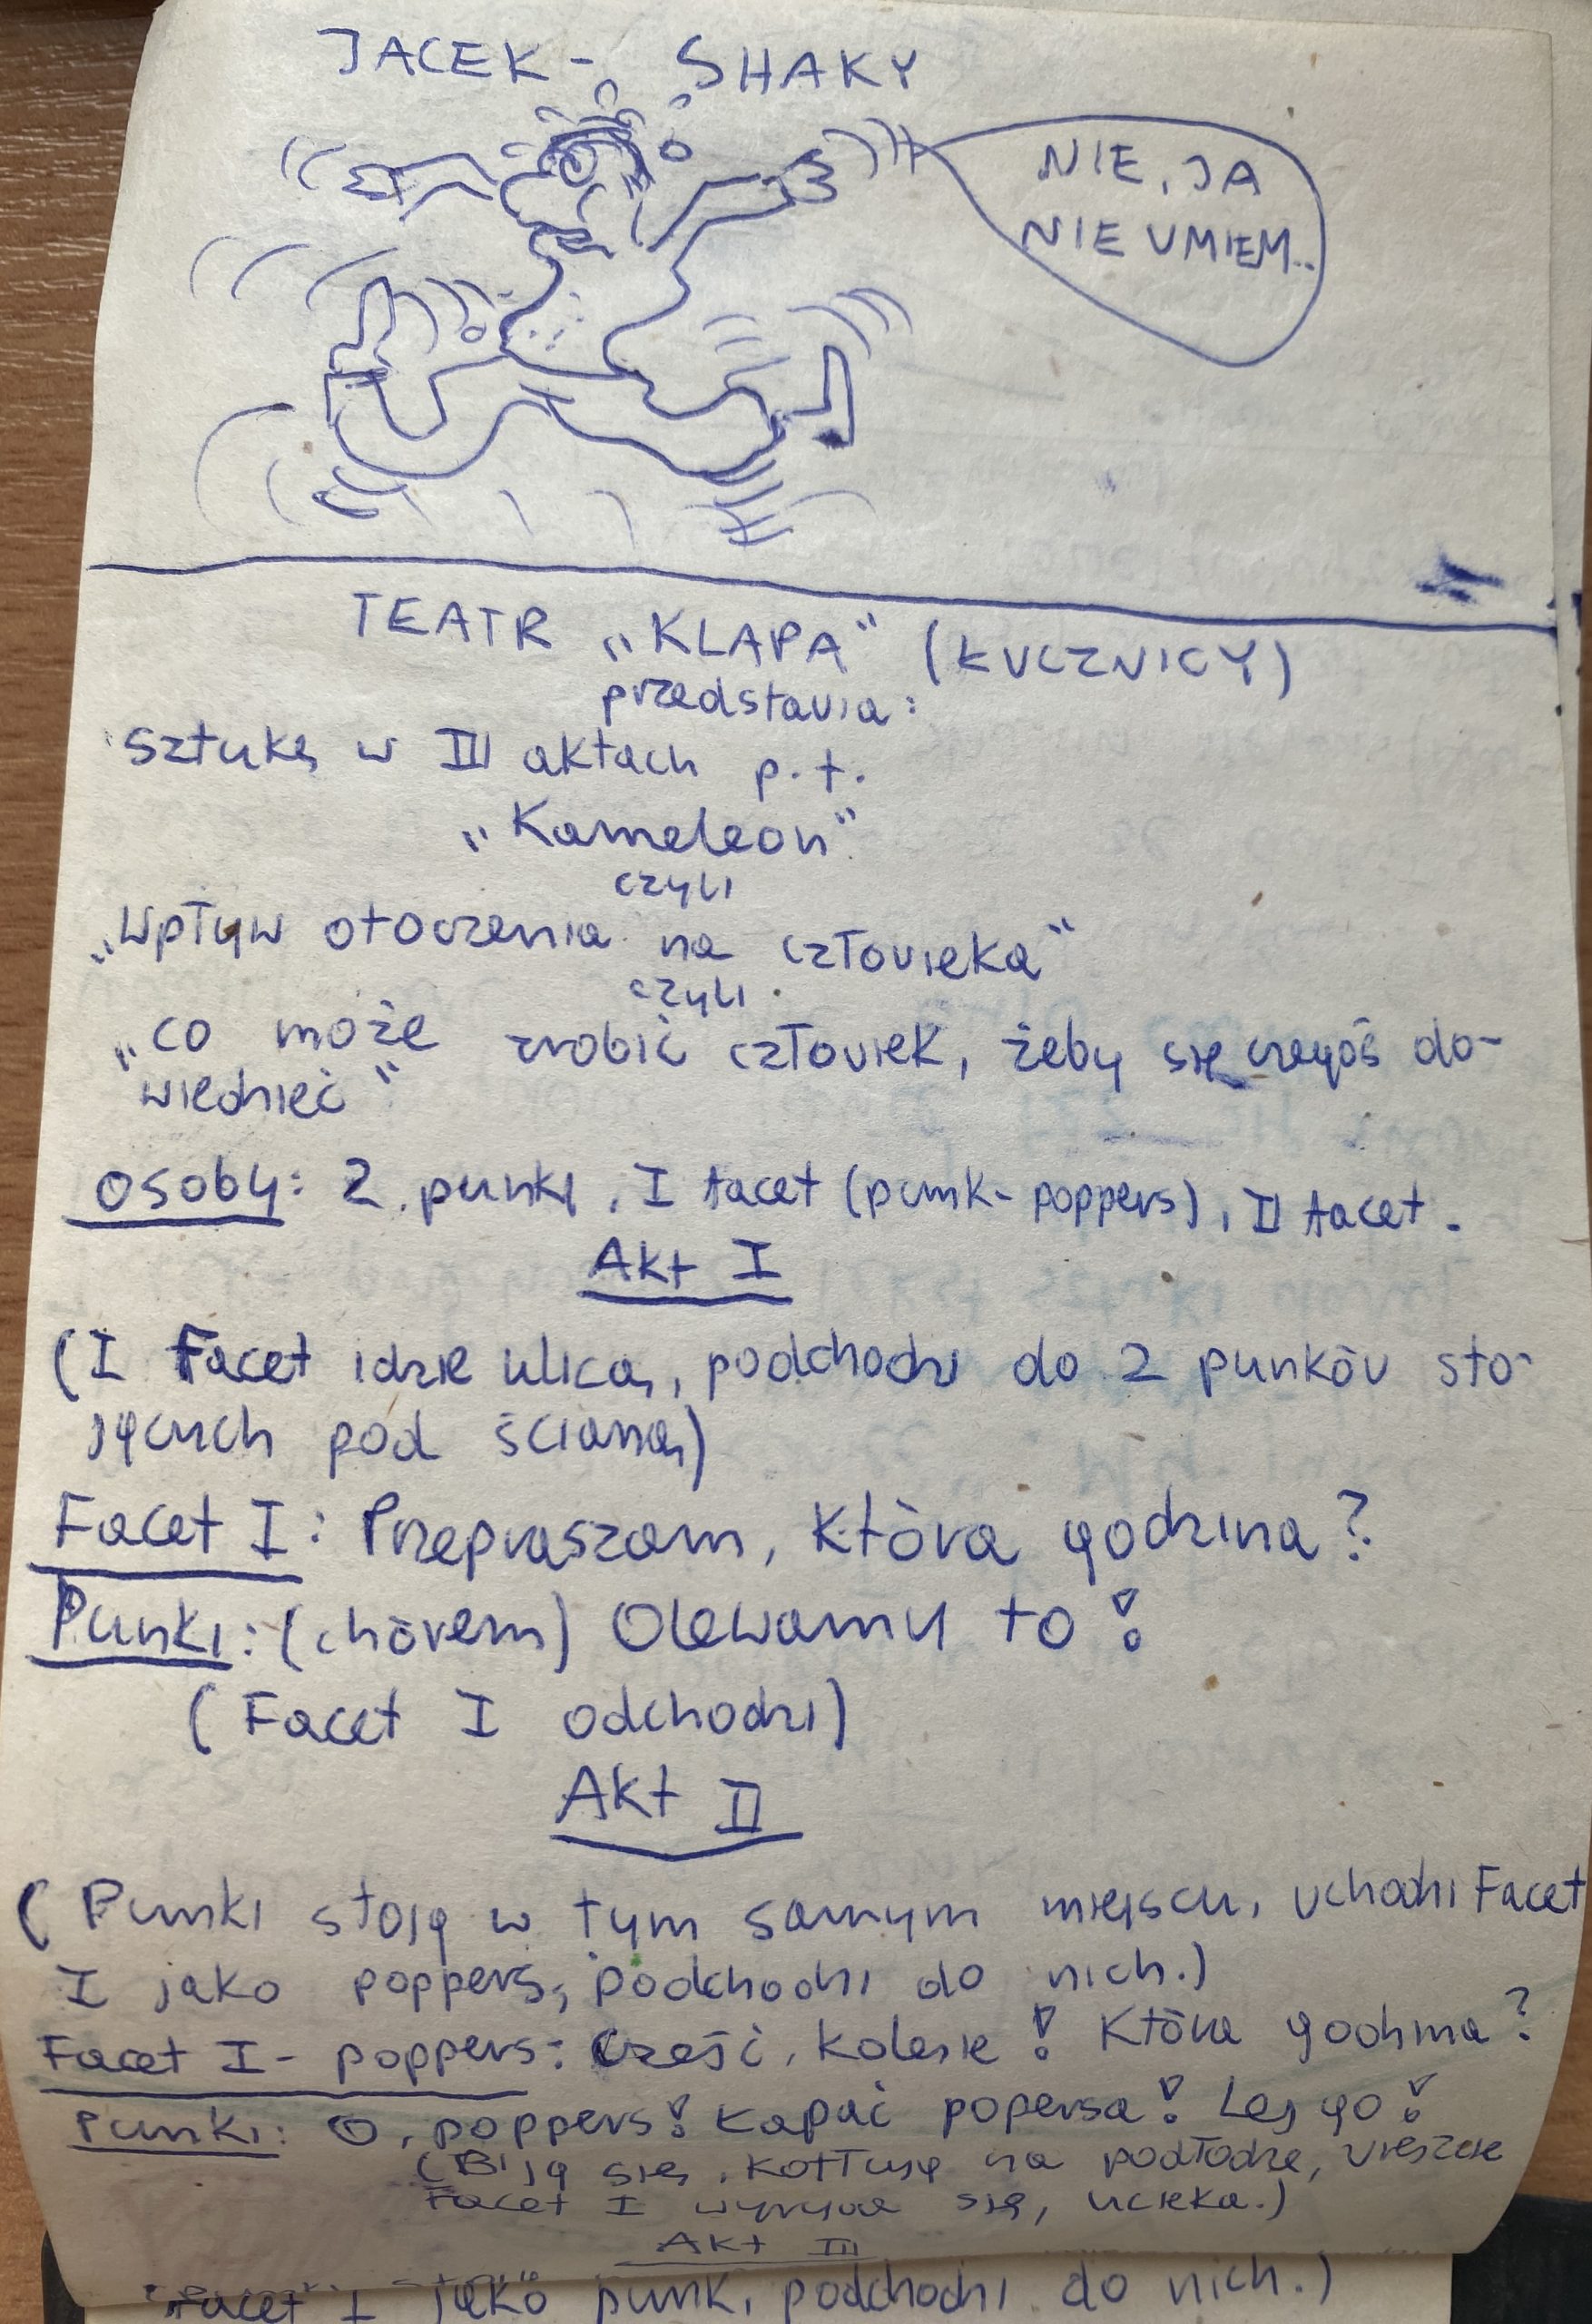 JACEK - SHAKY
NIE, JA
NIE UMIEM..
TEATR „KLAPA” (ŁUCZNICY)
przedstawia:
sztukę w III aktach p.t.
„Kameleon”
czyli
„Wpływ otoczenia na człowieka”
czyli
„co może zrobić człowiek, żeby się czegoś do-
wiedzieć”
osoby: 2 punki, I facet (punk-poppers), II facet.
Akt I
(I Facet idzie ulicą, podchodzi do 2 punków sto-
jących pod ścianą)
Facet I: Przepraszam, która godzina?
Punki: (chórem) Olewamy to!
(Facet I odchodzi)
Akt II
(Punki stoją w tym samym miejscu, wchodzi Facet
I jako poppers, podchodzi do nich.)
Facet I - poppers: Cześć, kolesie! Która godzina?
Punki: O, poppers! Łapać popersa! Lej go!
(Biją się, kotłują na podłodze, wreszcie
Facet I wyrywa się, ucieka.)
Akt III
Facet I jako punk, podchodzi do nich.)